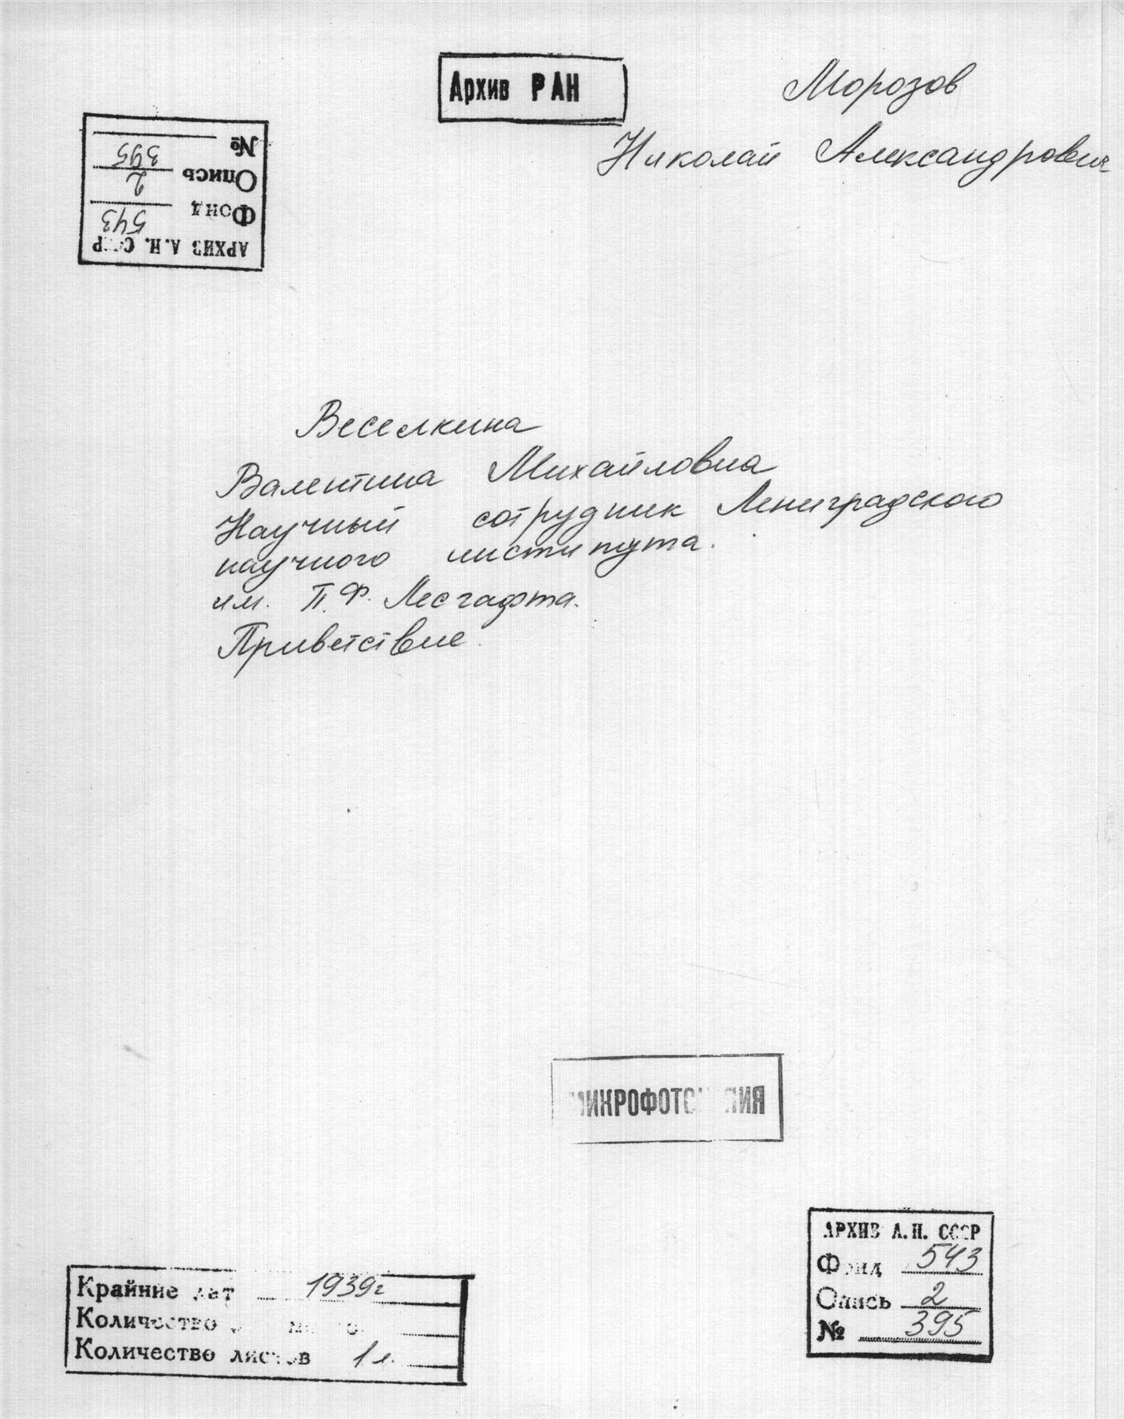 Архив РАН
Морозов
Николай Александрович
АРХИВ А.Н. СССР
Фонд 543
Опись 2
№ 395
Веселкина
Валентина Михайловна
Научный сотрудник Ленинградского
научного института
им. П.Ф. Лесгафта.
Приветствие.
МИКРОФОТОКОПИЯ
АРХИВ А.Н. СССР
Фонд 543
Опись 2
№ 395
Крайние дат 1939г
Количество
Количество листов 1 л.